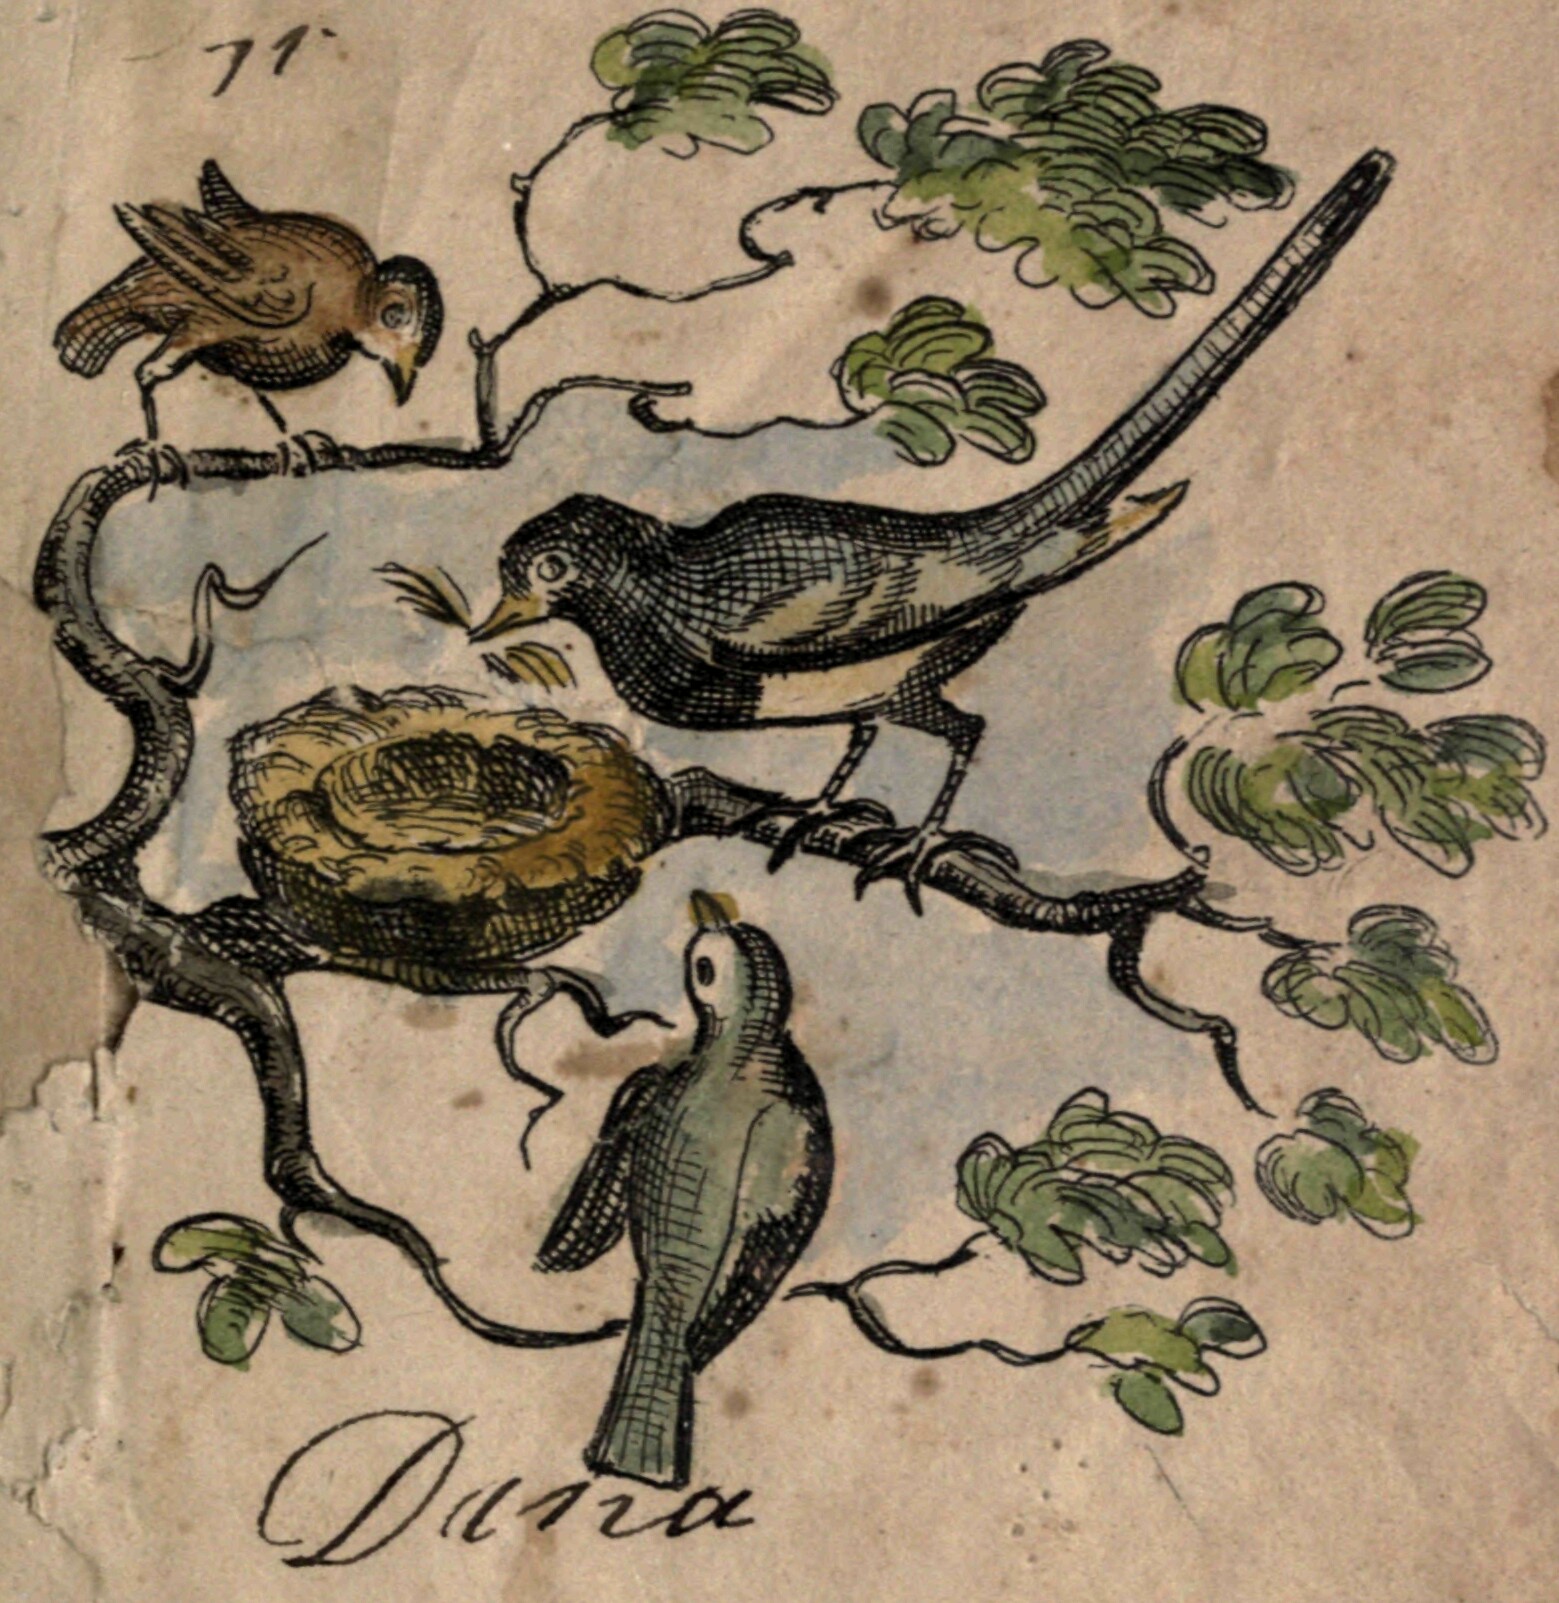 71.
Dana